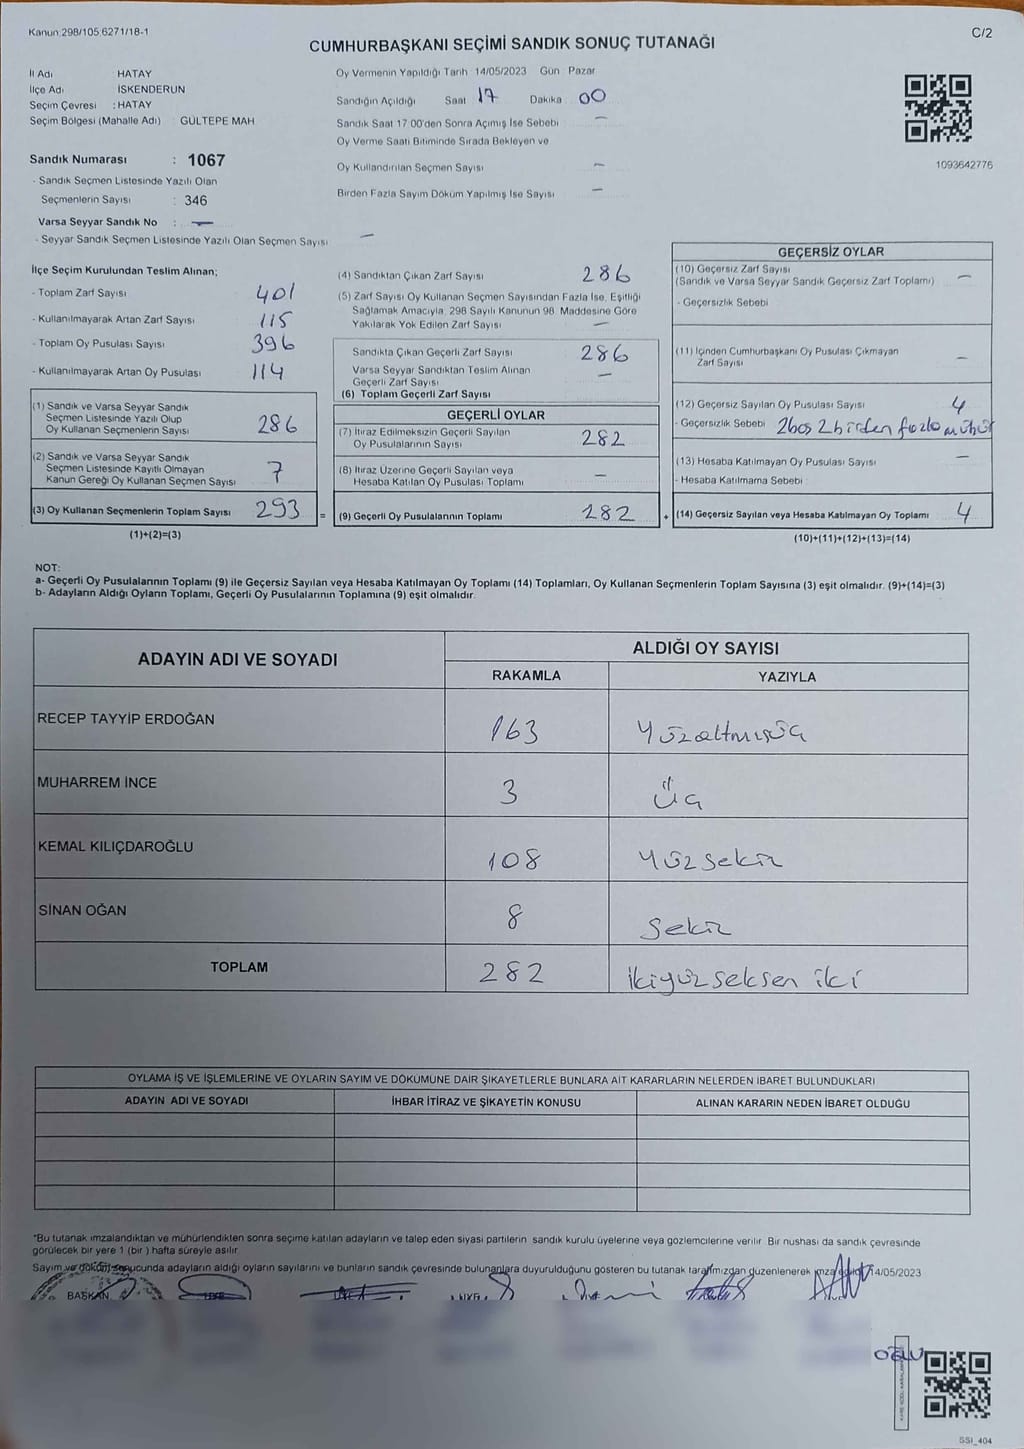 Kanun:298/105,6271/18-1
C/2
CUMHURBAŞKANI SEÇİMİ SANDIK SONUÇ TUTANAĞI
İl Adı HATAY
İlçe Adı İSKENDERUN
Seçim Çevresi : HATAY
Seçim Bölgesi (Mahalle Adı) GÜLTEPE MAH
Sandık Numarası : 1067
- Sandık Seçmen Listesinde Yazılı Olan
Seçmenlerin Sayısı : 346
Varsa Seyyar Sandık No : —
- Seyyar Sandık Seçmen Listesinde Yazılı Olan Seçmen Sayısı —
Oy Vermenin Yapıldığı Tarih 14/05/2023 Gün Pazar
Sandığın Açıldığı Saat 17 Dakika 00
Sandık Saat 17:00'den Sonra Açımış İse Sebebi —
Oy Verme Saati Bitiminde Sırada Bekleyen ve
Oy Kullandırılan Seçmen Sayısı —
Birden Fazla Sayım Döküm Yapılmış İse Sayısı —
1093642776
İlçe Seçim Kurulundan Teslim Alınan;
- Toplam Zarf Sayısı 401
- Kullanılmayarak Artan Zarf Sayısı 115
- Toplam Oy Pusulası Sayısı 396
- Kullanılmayarak Artan Oy Pusulası 114
(1) Sandık ve Varsa Seyyar Sandık
Seçmen Listesinde Yazılı Olup
Oy Kullanan Seçmenlerin Sayısı 286
(2) Sandık ve Varsa Seyyar Sandık
Seçmen Listesinde Kayıtlı Olmayan
Kanun Gereği Oy Kullanan Seçmen Sayısı 7
(3) Oy Kullanan Seçmenlerin Toplam Sayısı 293 =
(1)+(2)=(3)
(4) Sandıktan Çıkan Zarf Sayısı 286
(5) Zarf Sayısı Oy Kullanan Seçmen Sayısından Fazla İse, Eşitliği
Sağlamak Amacıyla, 298 Sayılı Kanunun 98. Maddesine Göre
Yakılarak Yok Edilen Zarf Sayısı —
Sandıkta Çıkan Geçerli Zarf Sayısı 286
Varsa Seyyar Sandıktan Teslim Alınan
Geçerli Zarf Sayısı —
(6) Toplam Geçerli Zarf Sayısı
GEÇERLİ OYLAR
(7) İtiraz Edilmeksizin Geçerli Sayılan
Oy Pusulalarının Sayısı 282
(8) İtiraz Üzerine Geçerli Sayılan veya
Hesaba Katılan Oy Pusulası Toplamı —
(9) Geçerli Oy Pusulalarının Toplamı 282 +
GEÇERSİZ OYLAR
(10) Geçersiz Zarf Sayısı
(Sandık ve Varsa Seyyar Sandık Geçersiz Zarf Toplamı) —
- Geçersizlik Sebebi
(11) İçinden Cumhurbaşkanı Oy Pusulası Çıkmayan
Zarf Sayısı —
(12) Geçersiz Sayılan Oy Pusulası Sayısı 4
- Geçersizlik Sebebi 2boş 2birden fazla mühür
(13) Hesaba Katılmayan Oy Pusulası Sayısı —
- Hesaba Katılmama Sebebi
(14) Geçersiz Sayılan veya Hesaba Katılmayan Oy Toplamı 4
(10)+(11)+(12)+(13)=(14)
NOT:
a- Geçerli Oy Pusulalarının Toplamı (9) ile Geçersiz Sayılan veya Hesaba Katılmayan Oy Toplamı (14) Toplamları, Oy Kullanan Seçmenlerin Toplam Sayısına (3) eşit olmalıdır. (9)+(14)=(3)
b- Adayların Aldığı Oyların Toplamı, Geçerli Oy Pusulalarının Toplamına (9) eşit olmalıdır.
ADAYIN ADI VE SOYADI
ALDIĞI OY SAYISI
RAKAMLA YAZIYLA
RECEP TAYYİP ERDOĞAN 163 Yüzaltmışüç
MUHARREM İNCE 3 Üç
KEMAL KILIÇDAROĞLU 108 Yüzsekiz
SİNAN OĞAN 8 Sekiz
TOPLAM 282 ikiyüzseksen iki
OYLAMA İŞ VE İŞLEMLERİNE VE OYLARIN SAYIM VE DÖKÜMÜNE DAİR ŞİKAYETLERLE BUNLARA AİT KARARLARIN NELERDEN İBARET BULUNDUKLARI
ADAYIN ADI VE SOYADI İHBAR İTİRAZ VE ŞİKAYETİN KONUSU ALINAN KARARIN NEDEN İBARET OLDUĞU
*Bu tutanak imzalandıktan ve mühürlendikten sonra seçime katılan adayların ve talep eden siyasi partilerin sandık kurulu üyelerine veya gözlemcilerine verilir. Bir nushası da sandık çevresinde
görülecek bir yere 1 (bir ) hafta süreyle asılır.
Sayım ve döküm sonucunda adayların aldığı oyların sayılarını ve bunların sandık çevresinde bulunanlara duyurulduğunu gösteren bu tutanak tarafımızdan düzenlenerek imza edildi 14/05/2023
BAŞKAN
OĞLU
SSI_404